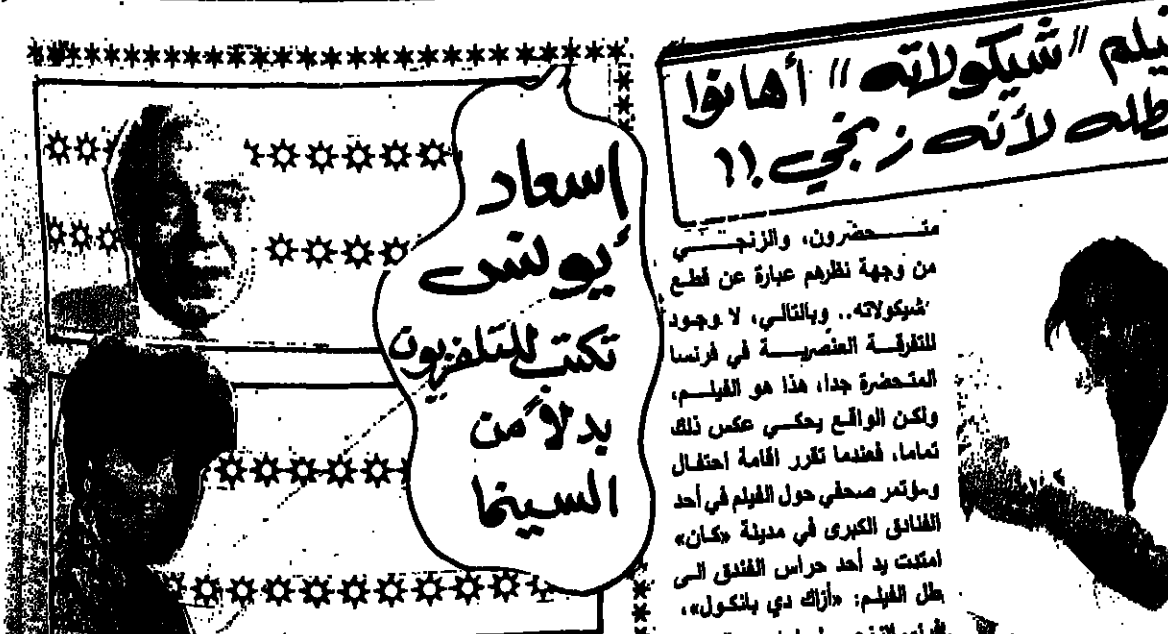 فيلم "شيكولاته" أهانوا
بطله لأنه زنجي!!
متحضرون، والزنجي
من وجهة نظرهم عبارة عن قطع
شيكولاته.. وبالتالي، لا وجود
للتفرقة العنصرية في فرنسا
المتحضرة جدا، هذا هو الفيلم،
ولكن الواقع يحكي عكس ذلك
تماما، فعندما تقرر اقامة احتفال
ومؤتمر صحفي حول الفيلم في أحد
الفنادق الكبرى في مدينة «كان»
امتدت يد أحد حراس الفندق الى
بطل الفيلم: «أزاك دي بانكول»،
اسعاد
يونس
تكتب للتلفزيون
بدلاً من
السينما